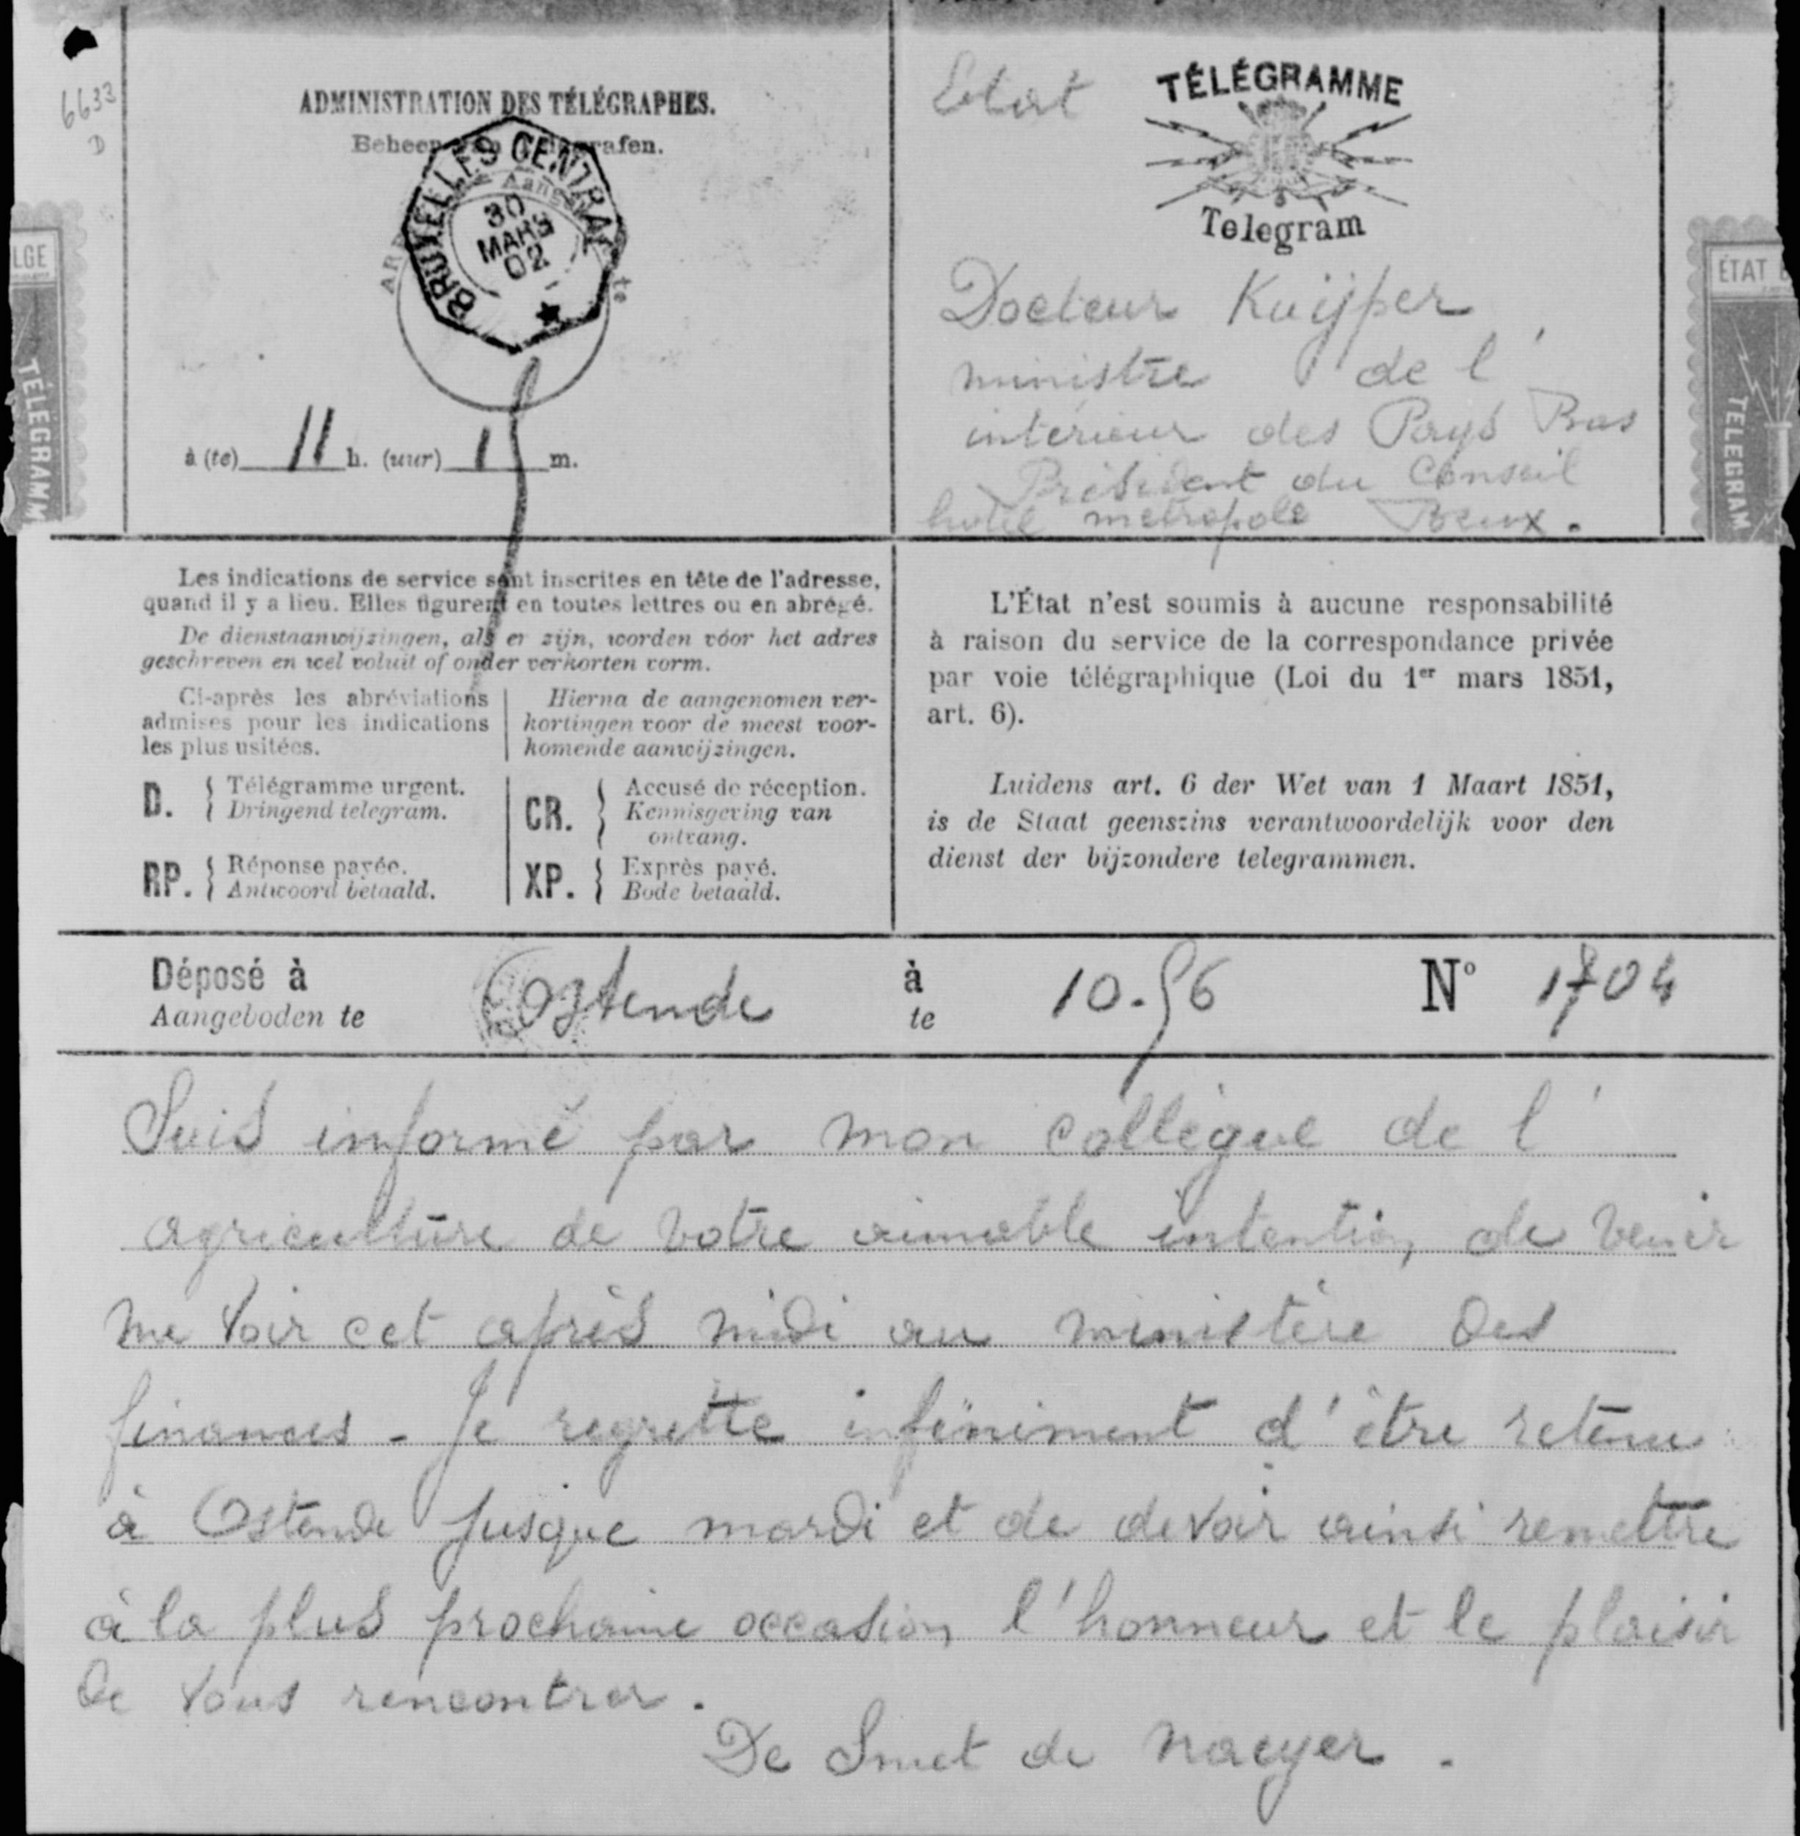 6633
D
ADMINISTRATION DES TÉLÉGRAPHES.
Beheer
BRUXELLES CENTRAL
30
MARS
02
à (te) 11 h. (uur) 1 m.
Etat
TÉLÉGRAMME
Telegram
Docteur Kuijper
ministre de l'
intérieur des Pays Bas
Président du Conseil
hotel metropole Brux.
LGE
TÉLÉGRAMM
ÉTAT B
TELEGRAM
Les indications de service sont inscrites en tête de l'adresse,
quand il y a lieu. Elles figurent en toutes lettres ou en abrégé.
De dienstaanwijzingen, als er zijn, worden vóor het adres
geschreven en wel voluit of onder verkorten vorm.
Ci-après les abréviations
admises pour les indications
les plus usitées.
Hierna de aangenomen ver-
kortingen voor de meest voor-
komende aanwijzingen.
D. { Télégramme urgent.
Dringend telegram.
CR. { Accusé de réception.
Kennisgeving van
ontvang.
RP. { Réponse payée.
Antwoord betaald.
XP. { Exprès payé.
Bode betaald.
L'État n'est soumis à aucune responsabilité
à raison du service de la correspondance privée
par voie télégraphique (Loi du 1er mars 1851,
art. 6).
Luidens art. 6 der Wet van 1 Maart 1851,
is de Staat geenszins verantwoordelijk voor den
dienst der bijzondere telegrammen.
Déposé à Ostende à 10.56 N° 1704
Aangeboden te te
Suis informé par mon collègue de l'
agriculture de votre aimable intention de venir
me voir cet après midi au ministère des
finances - Je regrette infiniment d'être retenu
à Ostende jusque mardi et de devoir ainsi remettre
à la plus prochaine occasion l'honneur et le plaisir
de vous rencontrer.
De Smet de Naeyer.